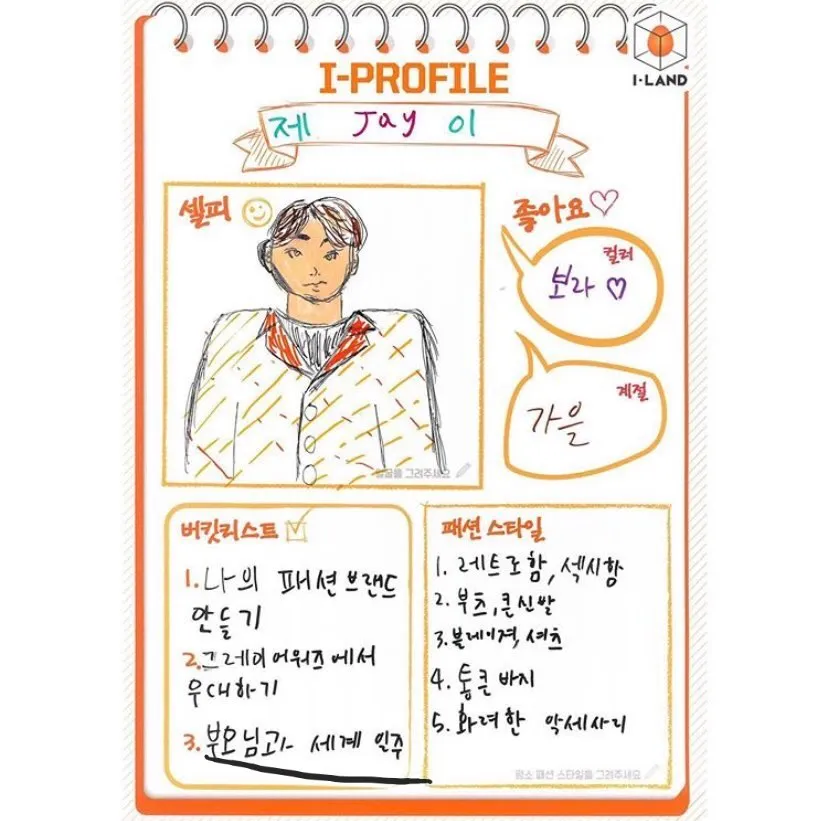 I-LAND
I-PROFILE
제 Jay 이
셀피
좋아요
컬러
보라
계절
가을
버킷리스트
1. 나의 패션브랜드
만들기
2. 그레미 어워즈에서
무대하기
3. 부모님과 세계 일주
패션 스타일
1. 레트로함, 섹시함
2. 부츠, 큰신발
3. 블레이져, 셔츠
4. 통큰 바지
5. 화려한 악세사리
평소 패션 스타일을 그려주세요
얼굴을 그려주세요